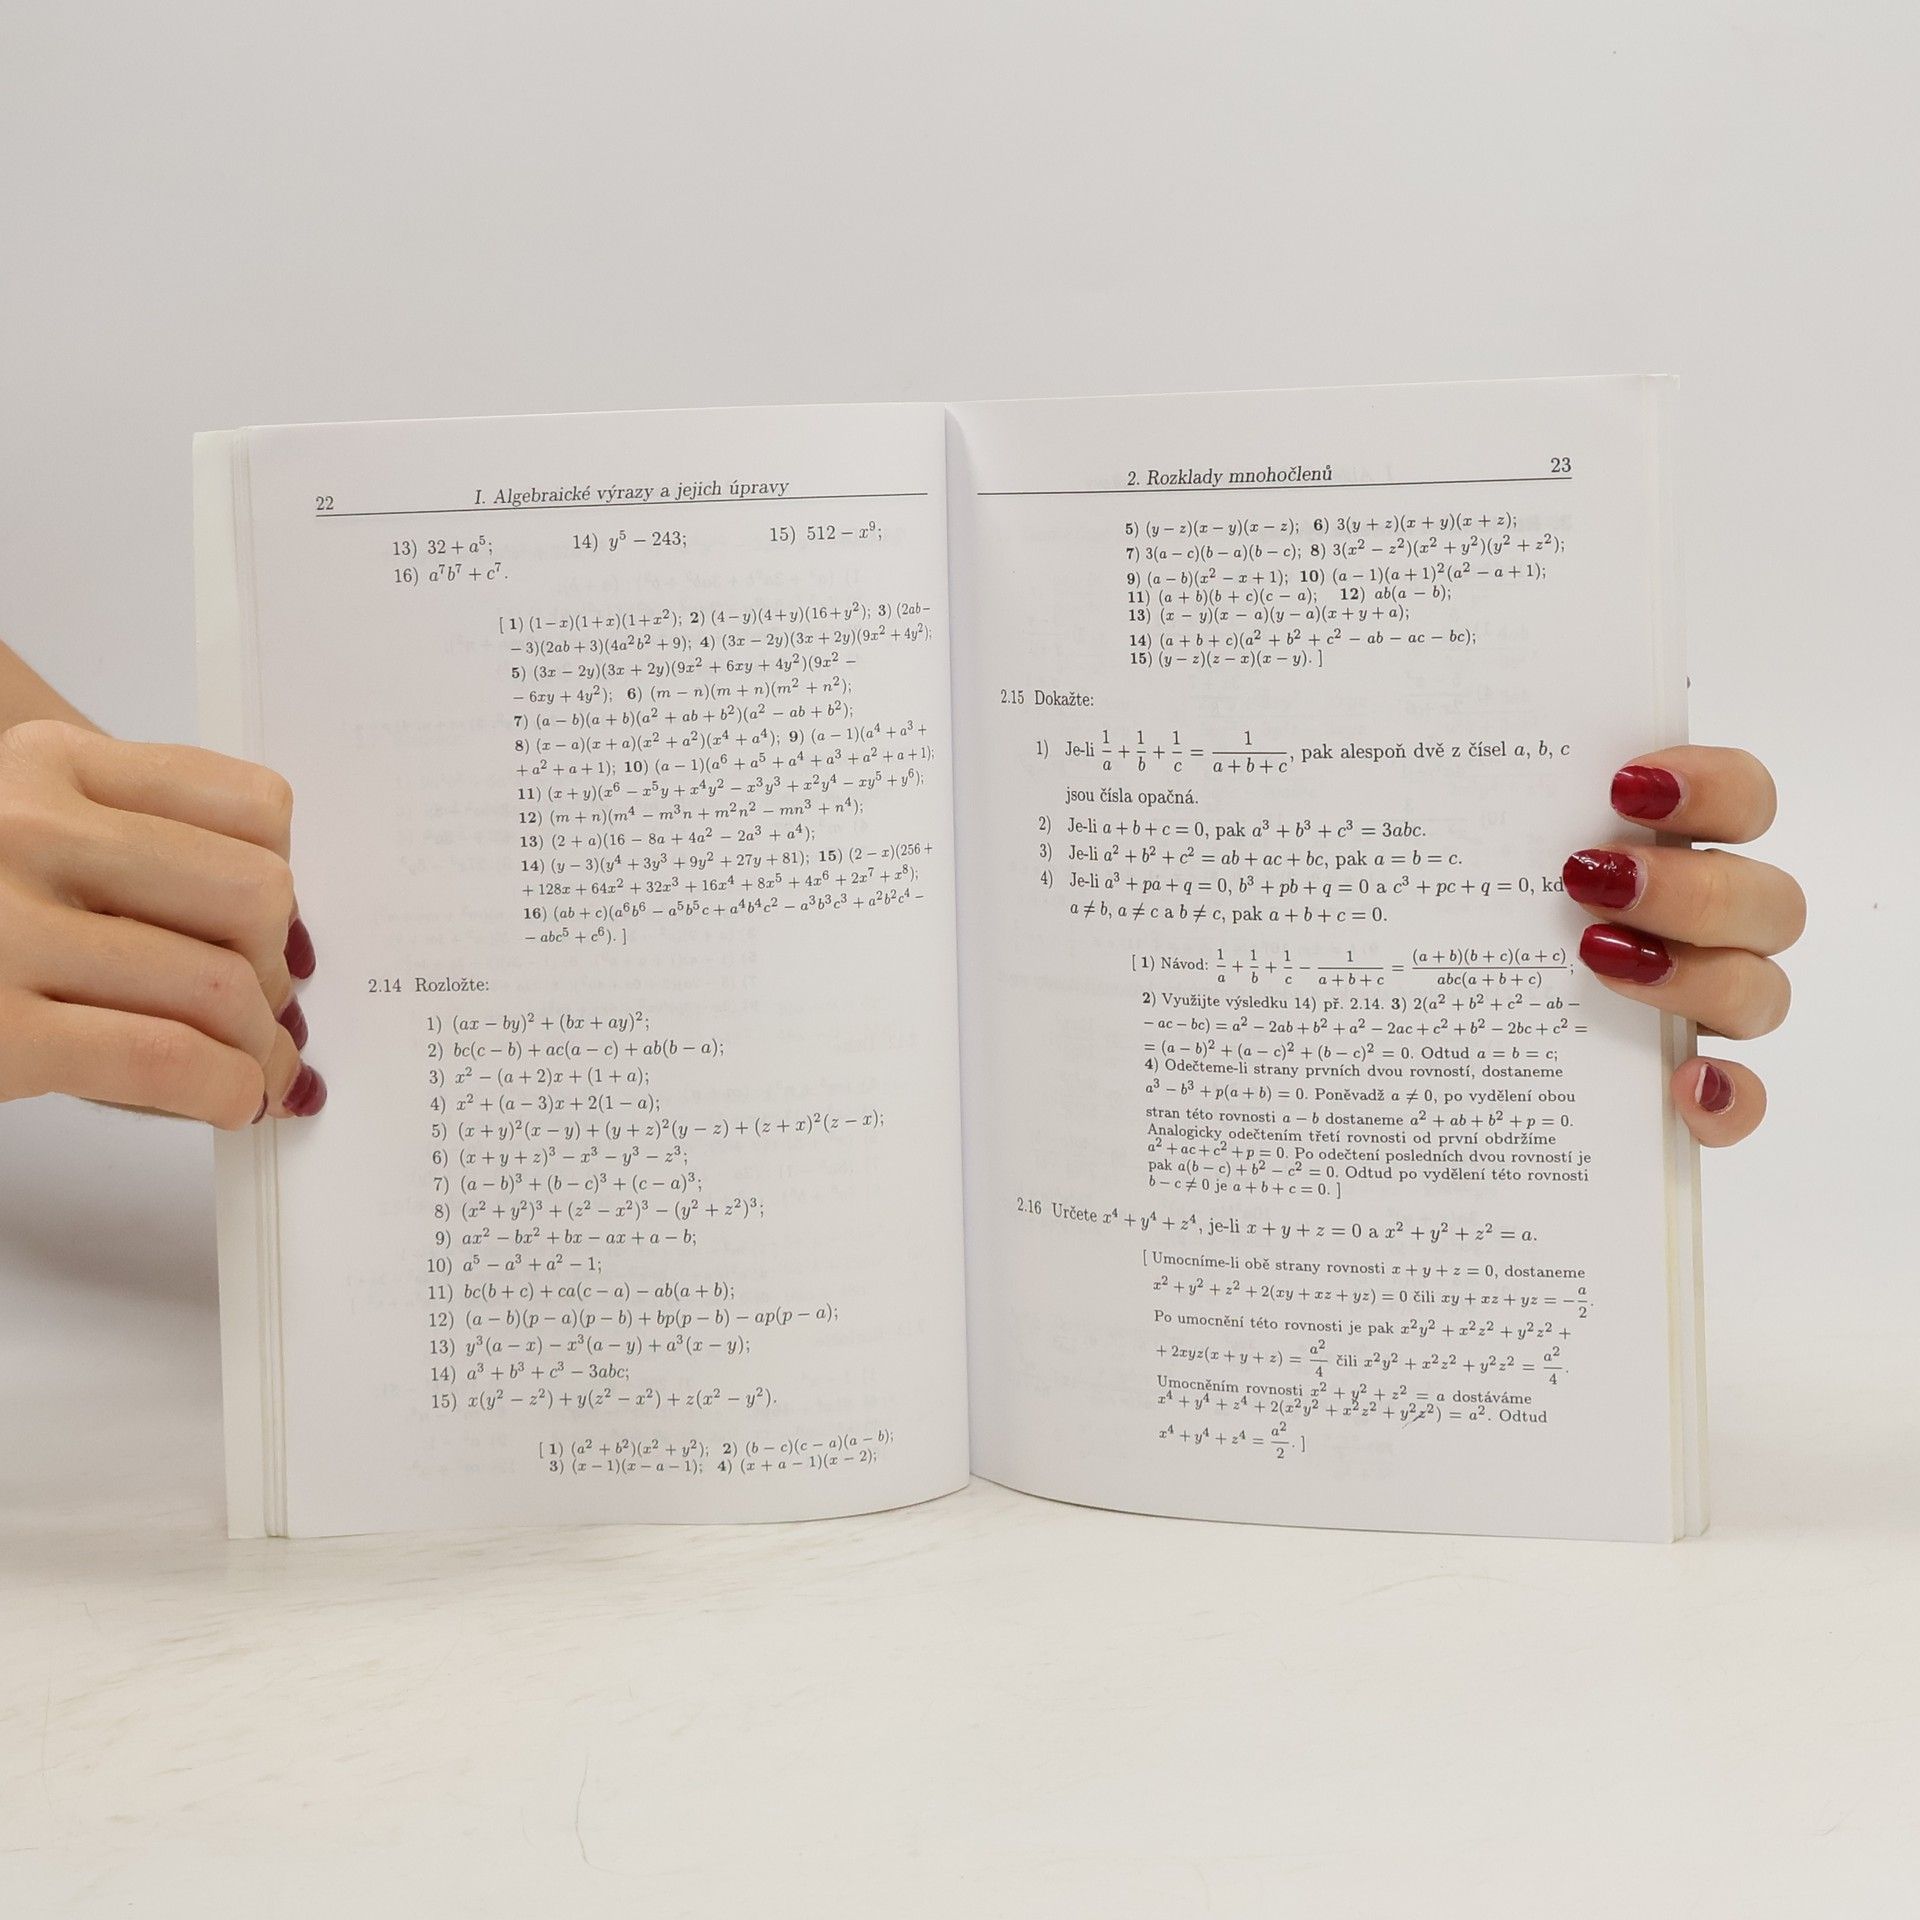 22 I. Algebraické výrazy a jejich úpravy
13) 32 + a⁵; 14) y⁵ − 243; 15) 512 − x⁹;
16) a⁷b⁷ + c⁷.
[ 1) (1−x)(1+x)(1+x²); 2) (4−y)(4+y)(16+y²); 3) (2ab−
− 3)(2ab + 3)(4a²b² + 9); 4) (3x − 2y)(3x + 2y)(9x² + 4y²);
5) (3x − 2y)(3x + 2y)(9x² + 6xy + 4y²)(9x² −
− 6xy + 4y²); 6) (m − n)(m + n)(m² + n²);
7) (a − b)(a + b)(a² + ab + b²)(a² − ab + b²);
8) (x − a)(x + a)(x² + a²)(x⁴ + a⁴); 9) (a − 1)(a⁴ + a³ +
+ a² + a + 1); 10) (a − 1)(a⁶ + a⁵ + a⁴ + a³ + a² + a + 1);
11) (x + y)(x⁶ − x⁵y + x⁴y² − x³y³ + x²y⁴ − xy⁵ + y⁶);
12) (m + n)(m⁴ − m³n + m²n² − mn³ + n⁴);
13) (2 + a)(16 − 8a + 4a² − 2a³ + a⁴);
14) (y − 3)(y⁴ + 3y³ + 9y² + 27y + 81); 15) (2 − x)(256 +
+ 128x + 64x² + 32x³ + 16x⁴ + 8x⁵ + 4x⁶ + 2x⁷ + x⁸);
16) (ab + c)(a⁶b⁶ − a⁵b⁵c + a⁴b⁴c² − a³b³c³ + a²b²c⁴ −
− abc⁵ + c⁶). ]
2.14 Rozložte:
1) (ax − by)² + (bx + ay)²;
2) bc(c − b) + ac(a − c) + ab(b − a);
3) x² − (a + 2)x + (1 + a);
4) x² + (a − 3)x + 2(1 − a);
5) (x + y)²(x − y) + (y + z)²(y − z) + (z + x)²(z − x);
6) (x + y + z)³ − x³ − y³ − z³;
7) (a − b)³ + (b − c)³ + (c − a)³;
8) (x² + y²)³ + (z² − x²)³ − (y² + z²)³;
9) ax² − bx² + bx − ax + a − b;
10) a⁵ − a³ + a² − 1;
11) bc(b + c) + ca(c − a) − ab(a + b);
12) (a − b)(p − a)(p − b) + bp(p − b) − ap(p − a);
13) y³(a − x) − x³(a − y) + a³(x − y);
14) a³ + b³ + c³ − 3abc;
15) x(y² − z²) + y(z² − x²) + z(x² − y²).
[ 1) (a² + b²)(x² + y²); 2) (b − c)(c − a)(a − b);
3) (x − 1)(x − a − 1); 4) (x + a − 1)(x − 2);
2. Rozklady mnohočlenů 23
5) (y − z)(x − y)(x − z); 6) 3(y + z)(x + y)(x + z);
7) 3(a − c)(b − a)(b − c); 8) 3(x² − z²)(x² + y²)(y² + z²);
9) (a − b)(x² − x + 1); 10) (a − 1)(a + 1)²(a² − a + 1);
11) (a + b)(b + c)(c − a); 12) ab(a − b);
13) (x − y)(x − a)(y − a)(x + y + a);
14) (a + b + c)(a² + b² + c² − ab − ac − bc);
15) (y − z)(z − x)(x − y). ]
2.15 Dokažte:
1) Je-li 1/a + 1/b + 1/c = 1/(a + b + c), pak alespoň dvě z čísel a, b, c
jsou čísla opačná.
2) Je-li a + b + c = 0, pak a³ + b³ + c³ = 3abc.
3) Je-li a² + b² + c² = ab + ac + bc, pak a = b = c.
4) Je-li a³ + pa + q = 0, b³ + pb + q = 0 a c³ + pc + q = 0, kd
a ≠ b, a ≠ c a b ≠ c, pak a + b + c = 0.
[ 1) Návod: 1/a + 1/b + 1/c − 1/(a + b + c) = (a + b)(b + c)(a + c)/abc(a + b + c);
2) Využijte výsledku 14) př. 2.14. 3) 2(a² + b² + c² − ab −
− ac − bc) = a² − 2ab + b² + a² − 2ac + c² + b² − 2bc + c² =
= (a − b)² + (a − c)² + (b − c)² = 0. Odtud a = b = c;
4) Odečteme-li strany prvních dvou rovností, dostaneme
a³ − b³ + p(a + b) = 0. Poněvadž a ≠ 0, po vydělení obou
stran této rovnosti a − b dostaneme a² + ab + b² + p = 0.
Analogicky odečtením třetí rovnosti od první obdržíme
a² + ac + c² + p = 0. Po odečtení posledních dvou rovností je
pak a(b − c) + b² − c² = 0. Odtud po vydělení této rovnosti
b − c ≠ 0 je a + b + c = 0. ]
2.16 Určete x⁴ + y⁴ + z⁴, je-li x + y + z = 0 a x² + y² + z² = a.
[ Umocníme-li obě strany rovnosti x + y + z = 0, dostaneme
x² + y² + z² + 2(xy + xz + yz) = 0 čili xy + xz + yz = −a/2.
Po umocnění této rovnosti je pak x²y² + x²z² + y²z² +
+ 2xyz(x + y + z) = a²/4 čili x²y² + x²z² + y²z² = a²/4.
Umocněním rovnosti x² + y² + z² = a dostáváme
x⁴ + y⁴ + z⁴ + 2(x²y² + x²z² + y²z²) = a². Odtud
x⁴ + y⁴ + z⁴ = a²/2. ]